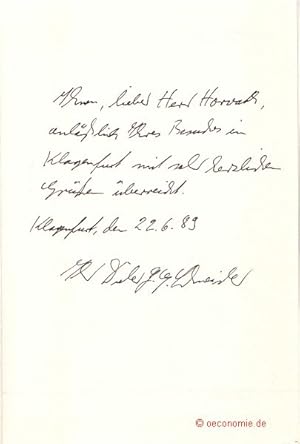 Ihnen, lieber Herr Horvath,
anläßlich Ihres Besuches in
Klagenfurt mit sehr herzlichen
Grüßen überreicht.
Klagenfurt, den 22.6.89
Ihr Dieter J. G. Schneider
© oeconomie.de